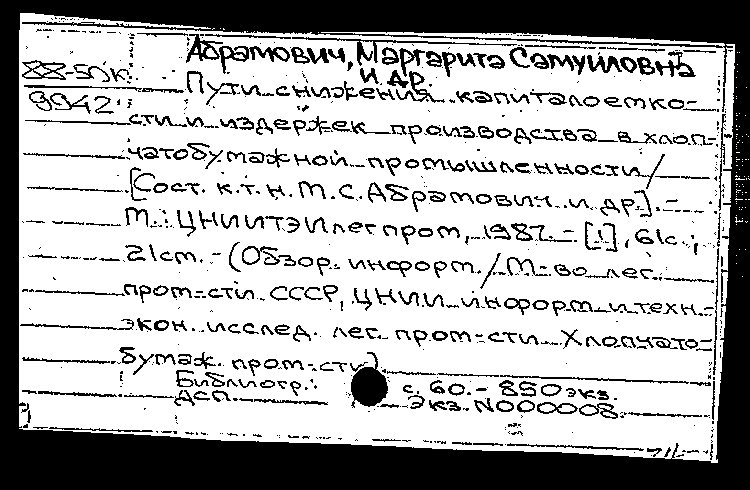 Абрамович, Маргарита Самуиловна
и др.
88-50к
9942
Пути снижения капиталоемко-
сти и издержек производства в хлоп-
чатобумажной промышленности /
[Сост. к.т.н. М.С. Абрамович и др.]. -
М.: ЦНИИТЭИлегпром, 1987. - [1], 61с.;
21см. - (Обзор. информ. / М-во лег.
пром-сти СССР, ЦНИИ информ. и техн.-
экон. исслед. лег. пром-сти. Хлопчато-
бумаж. пром-сть)
Библиогр.: с. 60. - 850 экз.
ДСП. Экз. N000008.